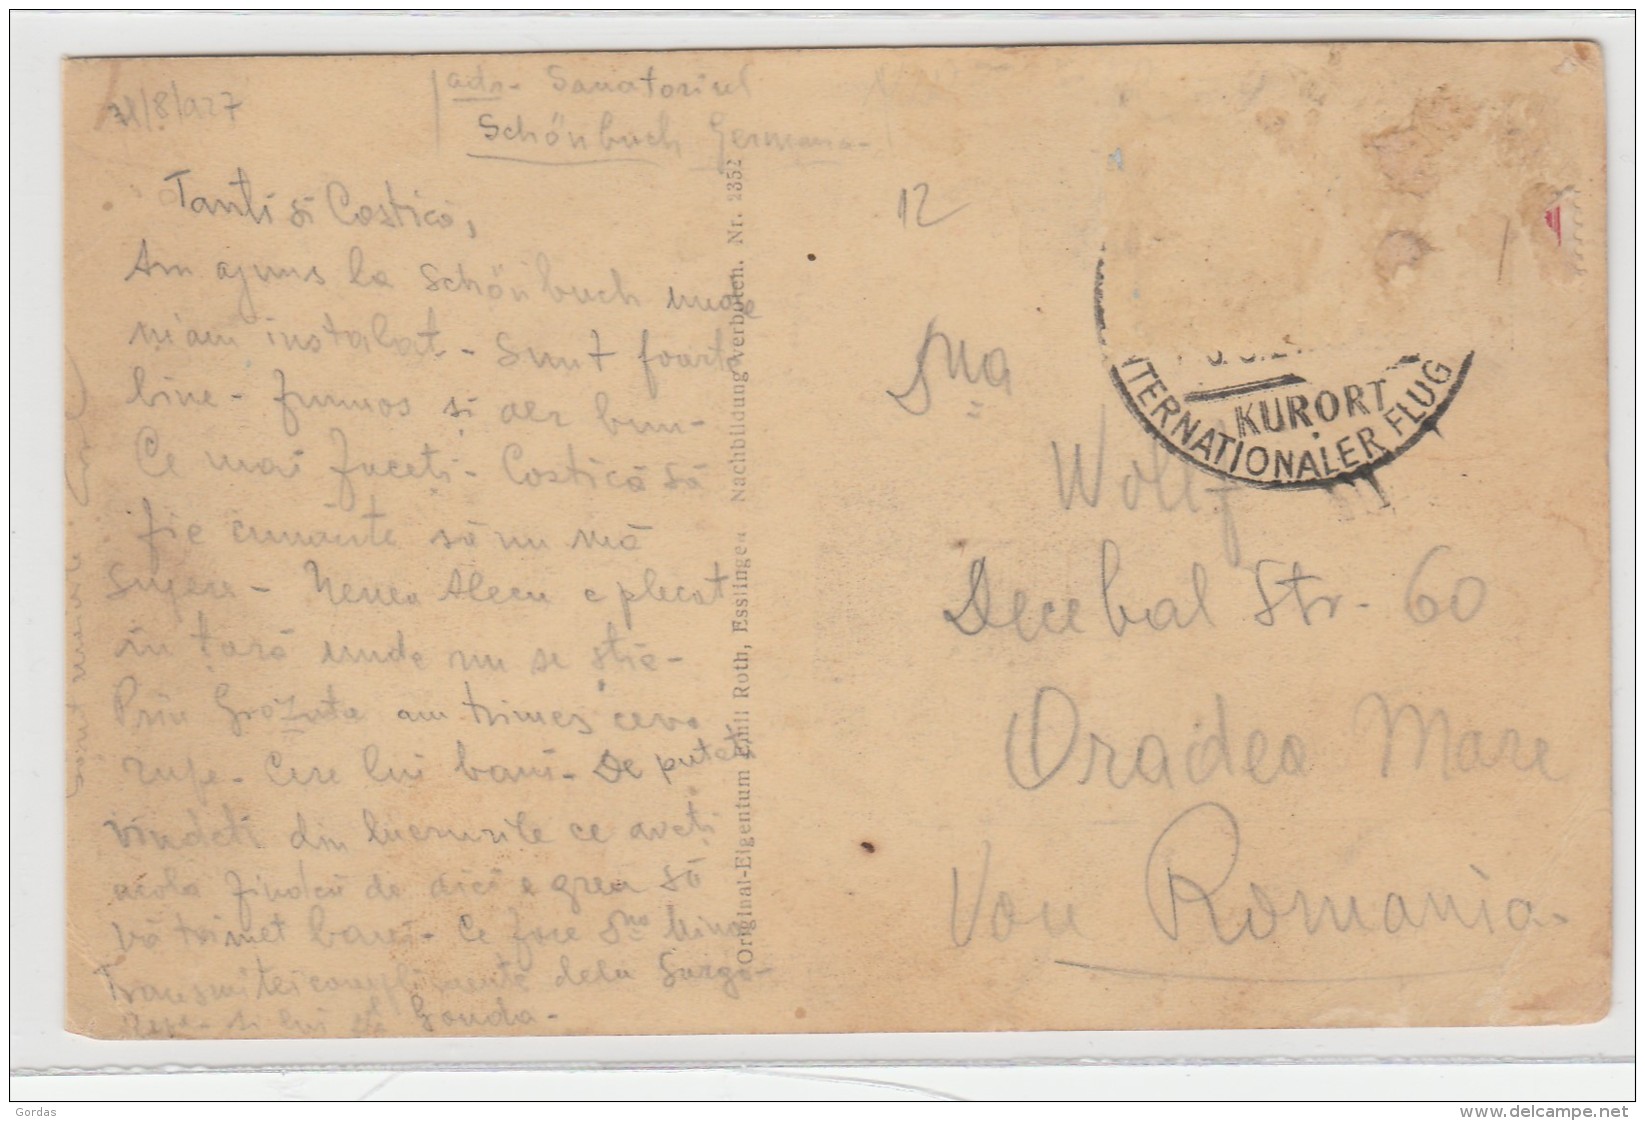 31/8/927
adr. Sanatoriul
Schönbuch Germania.
Tanti si Costică,
Am ajuns la Schönbuch unde
m'am instalat. Sunt foarte
bine. frumos și aer bun.
Ce mai faceți. Costică să
fie cuminte să nu mă
supere. Nenea Alecu e plecat
în țară unde nu se știe.
Prin Grözuta am trimes ceva
rufe. Cere lui bani. De puteți
vindeti din lucrurile ce aveți
acola fiindcă de aici e greu să
vă trimet bani. Ce face Sna
Transmitei complimente dela
si lui Gouda.
Original-Eigentum Emil Roth, Esslingen Nachbildung verboten. Nr. 2352
12
KURORT
ITERNATIONALER FLUG
Sna
Wolf
Decebal Str. 60
Oradea Mare
Von Romania.
Gordas
www.delcampe.net